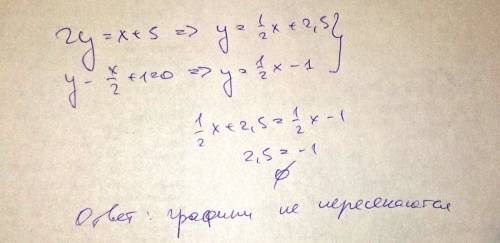 2y = x + 5 => y = 1/2 x + 2,5
y - x/2 + 1 = 0 => y = 1/2 x - 1
1/2 x + 2,5 = 1/2 x - 1
2,5 = -1
∅
Ответ: графики не пересекаются